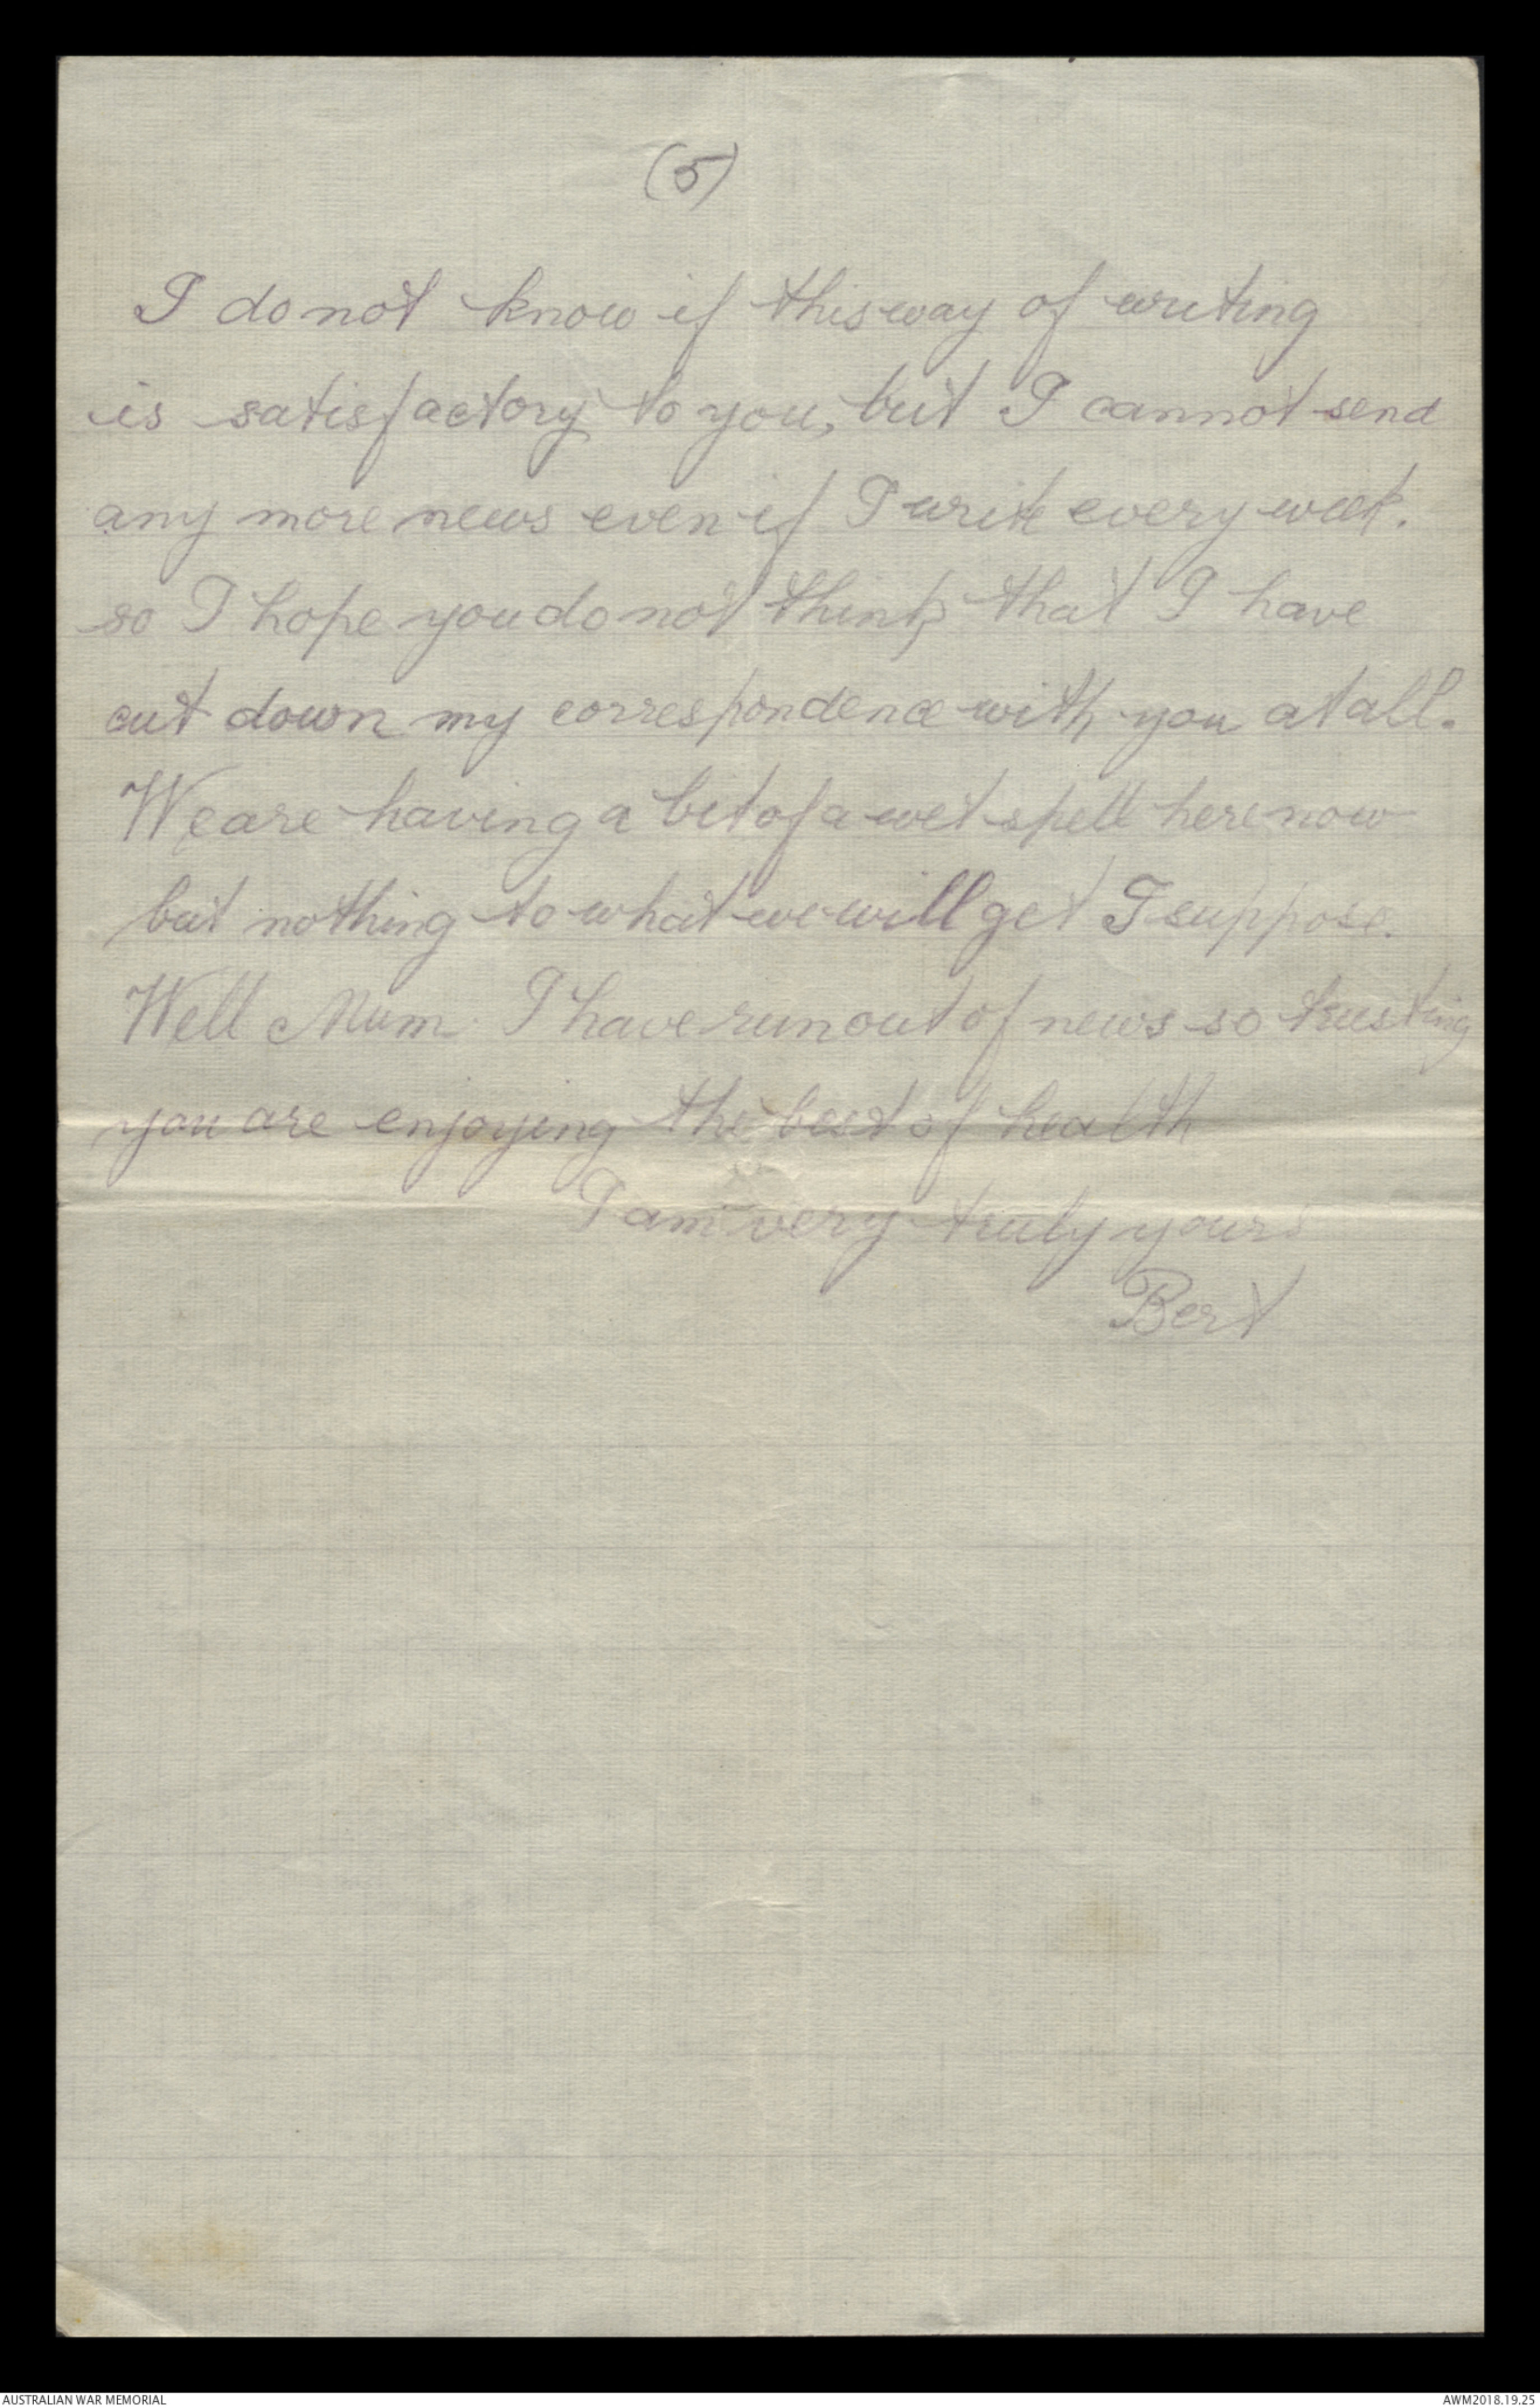 (5)
I do not know if this way of writing
is satisfactory to you, but I cannot send
any more news even if I write every week.
so I hope you do not think that I have
cut down my correspondence with you at all.
We are having a bit of a wet spell here now
but nothing to what we will get I suppose.
Well Mum I have run out of news so trusting
you are enjoying the best of health
I am very truly yours
Bert
AUSTRALIAN WAR MEMORIAL
AWM2018.19.25